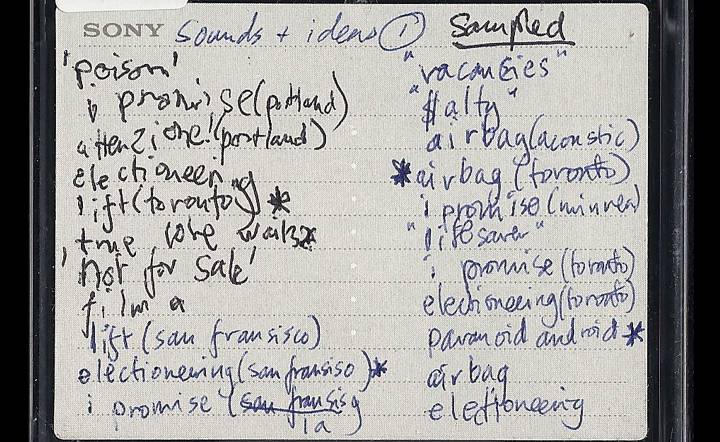 SONY Sounds + ideas ① Sampled
'poison'
i promise (portland)
attenzione! (portland)
electioneering
lift (toronto) *
true love waits *
'not for sale'
film a
lift (san fransisco)
electioneering (san fransiso) *
i promise (san fransis
la)
"vacancies"
"$alty"
airbag (acoustic)
*airbag (toronto)
i promise (
"lifesaver"
i promise (toronto)
electioneering (toronto)
paranoid android *
airbag
electioneering